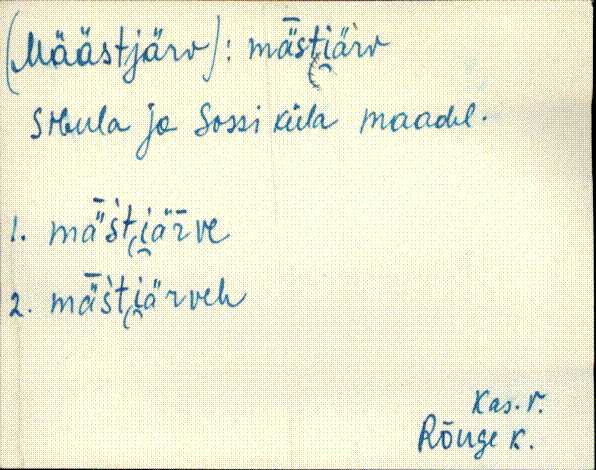 (Määstjärv): mǟsti̯ärv
Sibula ja Sossi küla maadel.
1. mǟśti̯äR̄ve
2. mǟśti̯ärveh
Kas. r.
Rõuge k.